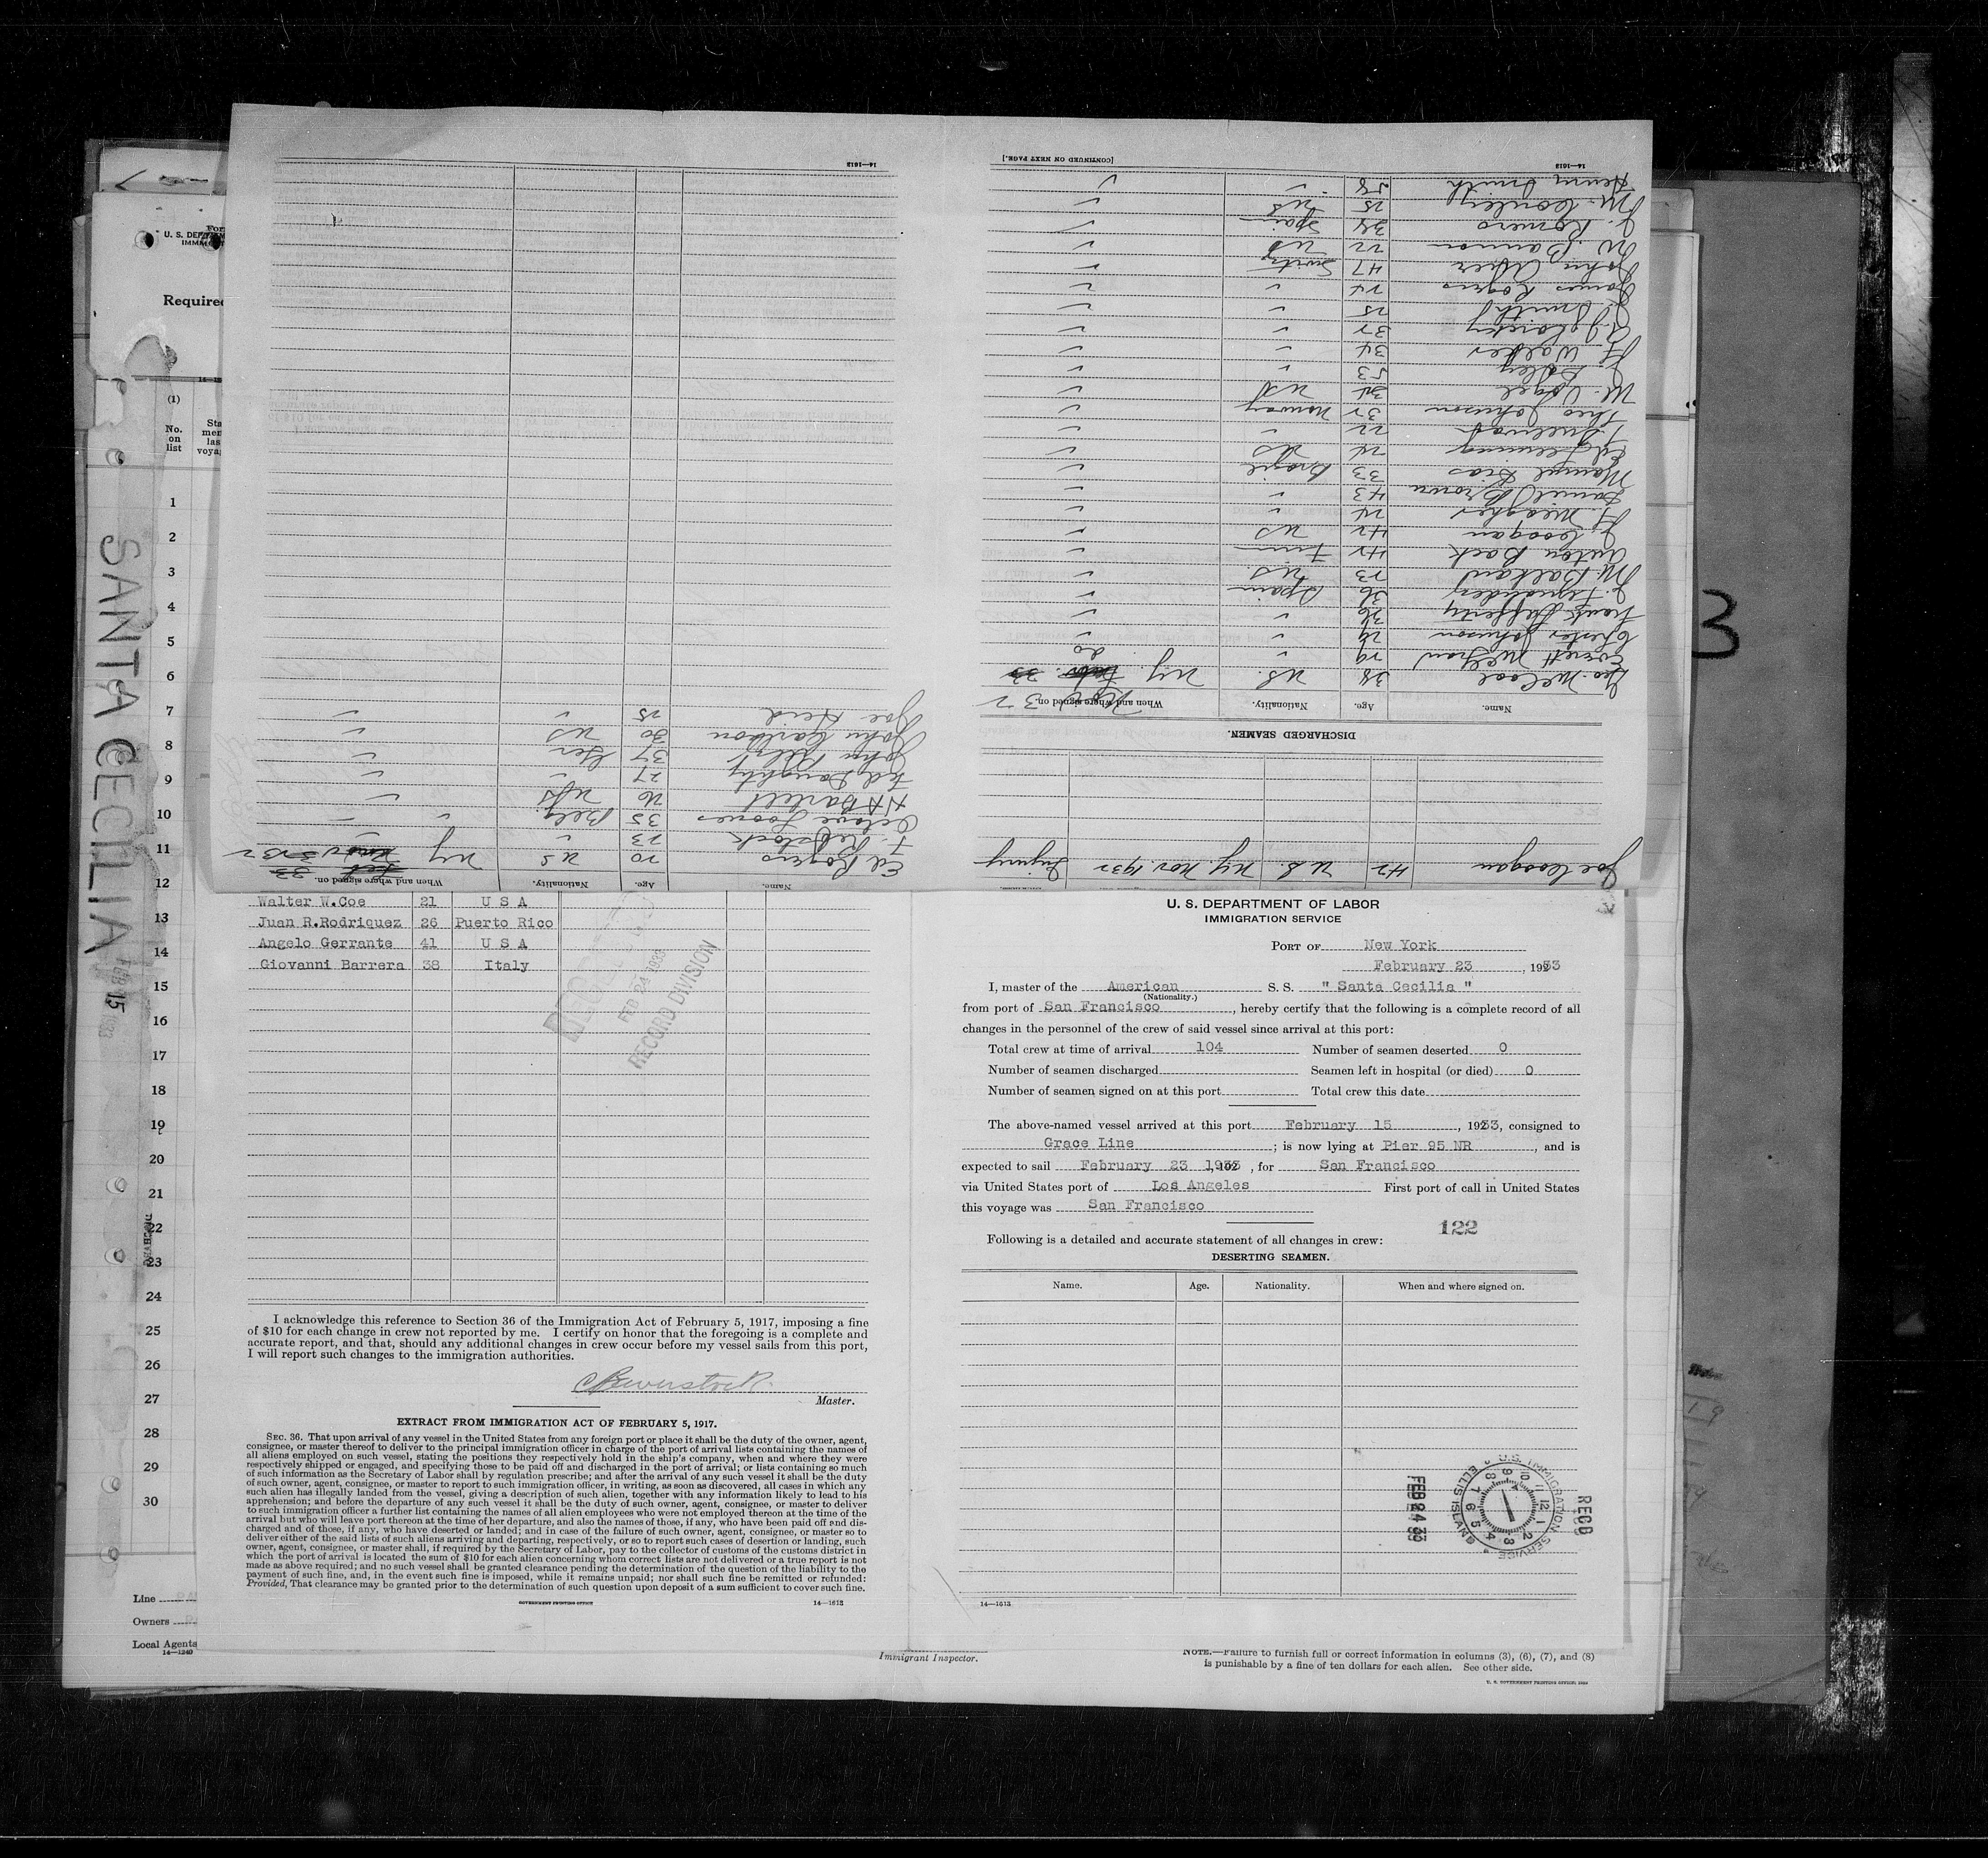 SANTA CECILIA
FEB 15 1933
U. S. DEPARTMENT OF LABOR
IMMIGRATION SERVICE
PORT OF New York
February 23, 1933
I, master of the American S. S. " Santa Cecilia "
(Nationality.)
from port of San Francisco, hereby certify that the following is a complete record of all
changes in the personnel of the crew of said vessel since arrival at this port:
Total crew at time of arrival 104 Number of seamen deserted 0
Number of seamen discharged Seamen left in hospital (or died) 0
Number of seamen signed on at this port Total crew this date
The above-named vessel arrived at this port February 15, 1933, consigned to
Grace Line; is now lying at Pier 95 NR, and is
expected to sail February 23 1933, for San Francisco
via United States port of Los Angeles First port of call in United States
this voyage was San Francisco
122
Following is a detailed and accurate statement of all changes in crew:
DESERTING SEAMEN.
Name. Age. Nationality. When and where signed on.
RECD
U.S. IMMIGRATION SERVICE
ELLIS ISLAND
FEB 24 33
14—1613
Joe Coogan 42 U.S. NY. Nov. 1932 Injury
DISCHARGED SEAMEN.
Name. Age. Nationality. When and where signed on.
Geo. McCool 38 US. NY. Nov 32
Everett 19 do
Chester Johnson 29
Frank Lafferty 36
J. Fernandez 36 Spain
M. Balkand 23 US.
Anton Back 42 Finn
J. Coogan 42 US
H. Meagher 24
Daniel Brown 43
Manuel Dias 33 Brazil
Ed Fleming 24 US
22
Theo Johnson 32 Norway
M. Vogel 34 US
J. Foley 53
H. Walker 34
32
J. Smith 25
James Rogers 24
John 47 Switz
W. Bannon 22 US
J. Romero 34 Spain
M. Conley 25 US
Henry Smith 58
14—1613
[CONTINUED ON NEXT PAGE.]
Name. Age. Nationality. When and where signed on.
Ed Rogers 20 US NY
F. Rebstock 23
Octave Loones 35 Belg
H A Bartlett 26 US
Ted Doughty 27
John 37 Ger
John Carlson 30 US
Joe Reid 25
14—1613
Walter W.Coe 21 U S A
Juan R.Rodriquez 26 Puerto Rico
Angelo Gerrante 41 U S A
Giovanni Barrera 38 Italy
RECEIVED
FEB 24 1933
RECORD DIVISION
I acknowledge this reference to Section 36 of the Immigration Act of February 5, 1917, imposing a fine
of $10 for each change in crew not reported by me. I certify on honor that the foregoing is a complete and
accurate report, and that, should any additional changes in crew occur before my vessel sails from this port,
I will report such changes to the immigration authorities.
Master.
EXTRACT FROM IMMIGRATION ACT OF FEBRUARY 5, 1917.
SEC. 36. That upon arrival of any vessel in the United States from any foreign port or place it shall be the duty of the owner, agent,
consignee, or master thereof to deliver to the principal immigration officer in charge of the port of arrival lists containing the names of
all aliens employed on such vessel, stating the positions they respectively hold in the ship's company, when and where they were
respectively shipped or engaged, and specifying those to be paid off and discharged in the port of arrival; or lists containing so much
of such information as the Secretary of Labor shall by regulation prescribe; and after the arrival of any such vessel it shall be the duty
of such owner, agent, consignee, or master to report to such immigration officer, in writing, as soon as discovered, all cases in which any
such alien has illegally landed from the vessel, giving a description of such alien, together with any information likely to lead to his
apprehension; and before the departure of any such vessel it shall be the duty of such owner, agent, consignee, or master to deliver
to such immigration officer a further list containing the names of all alien employees who were not employed thereon at the time of the
arrival but who will leave port thereon at the time of her departure, and also the names of those, if any, who have been paid off and dis-
charged and of those, if any, who have deserted or landed; and in case of the failure of such owner, agent, consignee, or master so to
deliver either of the said lists of such aliens arriving and departing, respectively, or so to report such cases of desertion or landing, such
owner, agent, consignee, or master shall, if required by the Secretary of Labor, pay to the collector of customs of the customs district in
which the port of arrival is located the sum of $10 for each alien concerning whom correct lists are not delivered or a true report is not
made as above required; and no such vessel shall be granted clearance pending the determination of the question of the liability to the
payment of such fine, and, in the event such fine is imposed, while it remains unpaid; nor shall such fine be remitted or refunded:
Provided, That clearance may be granted prior to the determination of such question upon deposit of a sum sufficient to cover such fine.
GOVERNMENT PRINTING OFFICE
14—1613
U. S. DEPARTM
Required
(1)
No.
on
list
1
2
3
4
5
6
7
8
9
10
11
12
13
14
15
16
17
18
19
20
21
22
23
24
25
26
27
28
29
30
Line
Owners
Local Agents
14—1240
Immigrant Inspector.
NOTE.—Failure to furnish full or correct information in columns (3), (6), (7), and (8)
is punishable by a fine of ten dollars for each alien. See other side.
U. S. GOVERNMENT PRINTING OFFICE
3